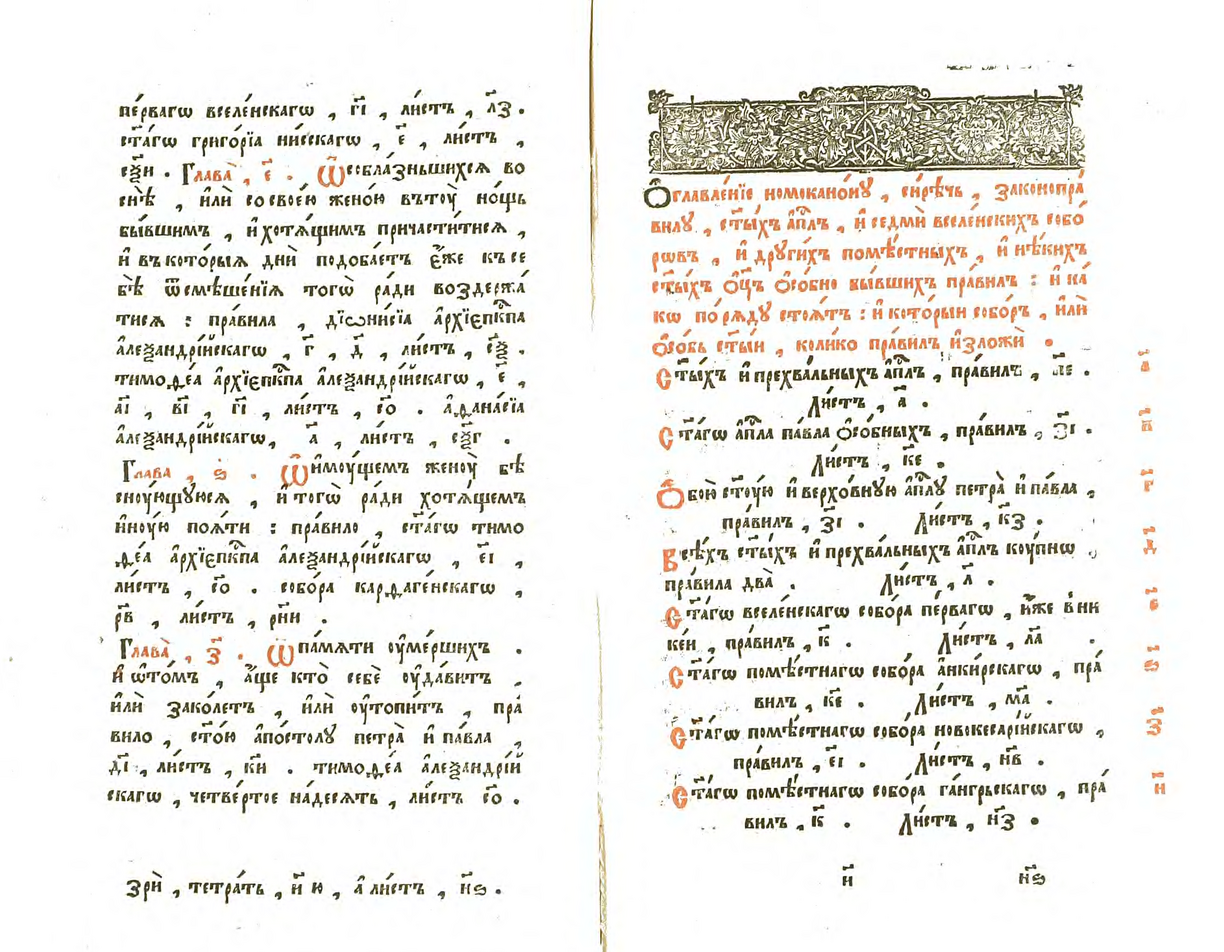 пе́рвагѡ вселе́нскагѡ , г҃і , ли́стъ , л҃з .
ст҃а́гѡ григо́рїа ни́сскагѡ , є҃ , ли́стъ ,
сѯ҃и . Глава̀ , є҃ . Ѿсоблазньшихсѧ во
снѣ̀ , и҆лѝ сосвоє́ю жено́ю втꙋ́ю но́щь
бы́вшимъ , и҆ хотѧ́щимъ причасти́тисѧ ,
и҆ въкото́рыѧ днѝ подоба́етъ є҆́же къ се
бѣ̀ ѿсмѣше́нїѧ тогѡ̀ ра́ди воздержа́
тисѧ : пра́вила , дїѡни́сїа а҆рхїєпⷭ҇кпа
а҆леѯандрі́йскагѡ , г҃ , д҃ , ли́стъ , сѯ҃ .
тимоѳе́а а҆рхїєпⷭ҇кпа а҆леѯандрі́йскагѡ , є҃ ,
а҃і , в҃і , г҃і , ли́стъ , с҃о . а҆ѳана́сїа
а҆леѯандрі́йскагѡ , а҃ , ли́стъ , сѯ҃г .
Глава , ѕ҃ . Ѿимоу́щемъ женоу̀ бѣ
сноу́ющуюсѧ , и҆ тогѡ̀ ра́ди хотѧ́щемъ
и҆ноу́ю поѧ́ти : пра́вило , ст҃а́гѡ тимо
ѳе́а а҆рхїєпⷭ҇кпа а҆леѯандрі́йскагѡ , є҃і ,
ли́стъ , с҃о . собо́ра карѳаге́нскагѡ ,
р҃в , ли́стъ , рн҃и .
Глава̀ , з҃ . Ѿпа́мѧти оу҆ме́ршихъ .
и҆ ѡ҆то́мъ , а҆́ще кто̀ себѐ оу҆да́витъ
и҆лѝ зако́летъ , и҆лѝ оу҆то́питъ , пра́
вило , ст҃о́ю а҆по́столꙋ петра̀ и҆ па́вла ,
д҃і , ли́стъ , к҃и . тимоѳе́а а҆леѯандрі́й
скагѡ , четве́ртое на́десѧть , ли́стъ с҃о .
Зрѝ , тетра́ть , и҃ ю , а҆ ли́стъ , н҃ѕ .
Ѻ҆главле́нїе номокано́нꙋ , си́рѣчь , законопра́
вилꙋ , ст҃ы́хъ а҆пⷭ҇лъ , и҆ седмѝ вселе́нскихъ собо́
рѡвъ , и҆ други́хъ помѣ́стныхъ , и҆ нѣ́кихъ
ст҃ы́хъ ѻ҆ц҃ъ ѻ҆со́бно бы́вшихъ пра́вилъ : и҆ ка́
кѡ по рѧ́дꙋ стоѧ́тъ : и҆ кото́рыи собо́ръ , и҆лѝ
ѻ҆со́бь ст҃ы́и , коли́ко пра́вилъ и҆зложѝ .
Ст҃ы́хъ и҆ прехва́льныхъ а҆пⷭ҇лъ , пра́вилъ , п҃е . а҃
Ли́стъ , а҃ .
Ст҃а́гѡ а҆пⷭ҇ла па́вла ѻ҆со́бныхъ , пра́вилъ , з҃і . в҃
Ли́стъ , к҃е .
Ѻ҆бою̀ ст҃ꙋ́ю и҆ верхо́вную а҆пⷭ҇лꙋ петра̀ и҆ па́вла , г҃
пра́вилъ , з҃і . Ли́стъ , к҃з .
Всѣ́хъ ст҃ы́хъ и҆ прехва́льныхъ а҆пⷭ҇лъ коу́пнѡ , д҃
пра́вила два̀ . Ли́стъ , л҃ .
Ст҃а́гѡ вселе́нскагѡ собо́ра пе́рвагѡ , и҆́же в ни є҃
ке́и , пра́вилъ , к҃ . Ли́стъ , л҃а .
Ст҃а́гѡ помѣ́стнагѡ собо́ра а҆нки́рскагѡ , пра́ ѕ҃
вилъ , к҃е . Ли́стъ , м҃а .
Ст҃а́гѡ помѣ́стнагѡ собо́ра новокесарі́йскагѡ , з҃
пра́вилъ , є҃і . Ли́стъ , н҃в .
Ст҃а́гѡ помѣ́стнагѡ собо́ра га́нгрьскагѡ , пра́ и҃
вилъ , к҃ . Ли́стъ , н҃з .
и҃ н҃ѕ